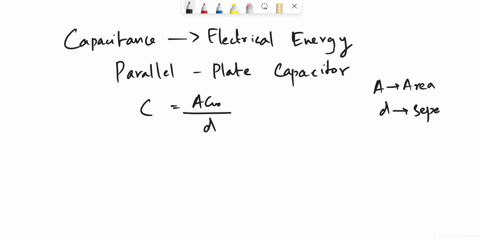 Capacitance → Electrical Energy
Parallel - Plate Capacitor
C = A ε₀ / d
A → Area
d → sepe